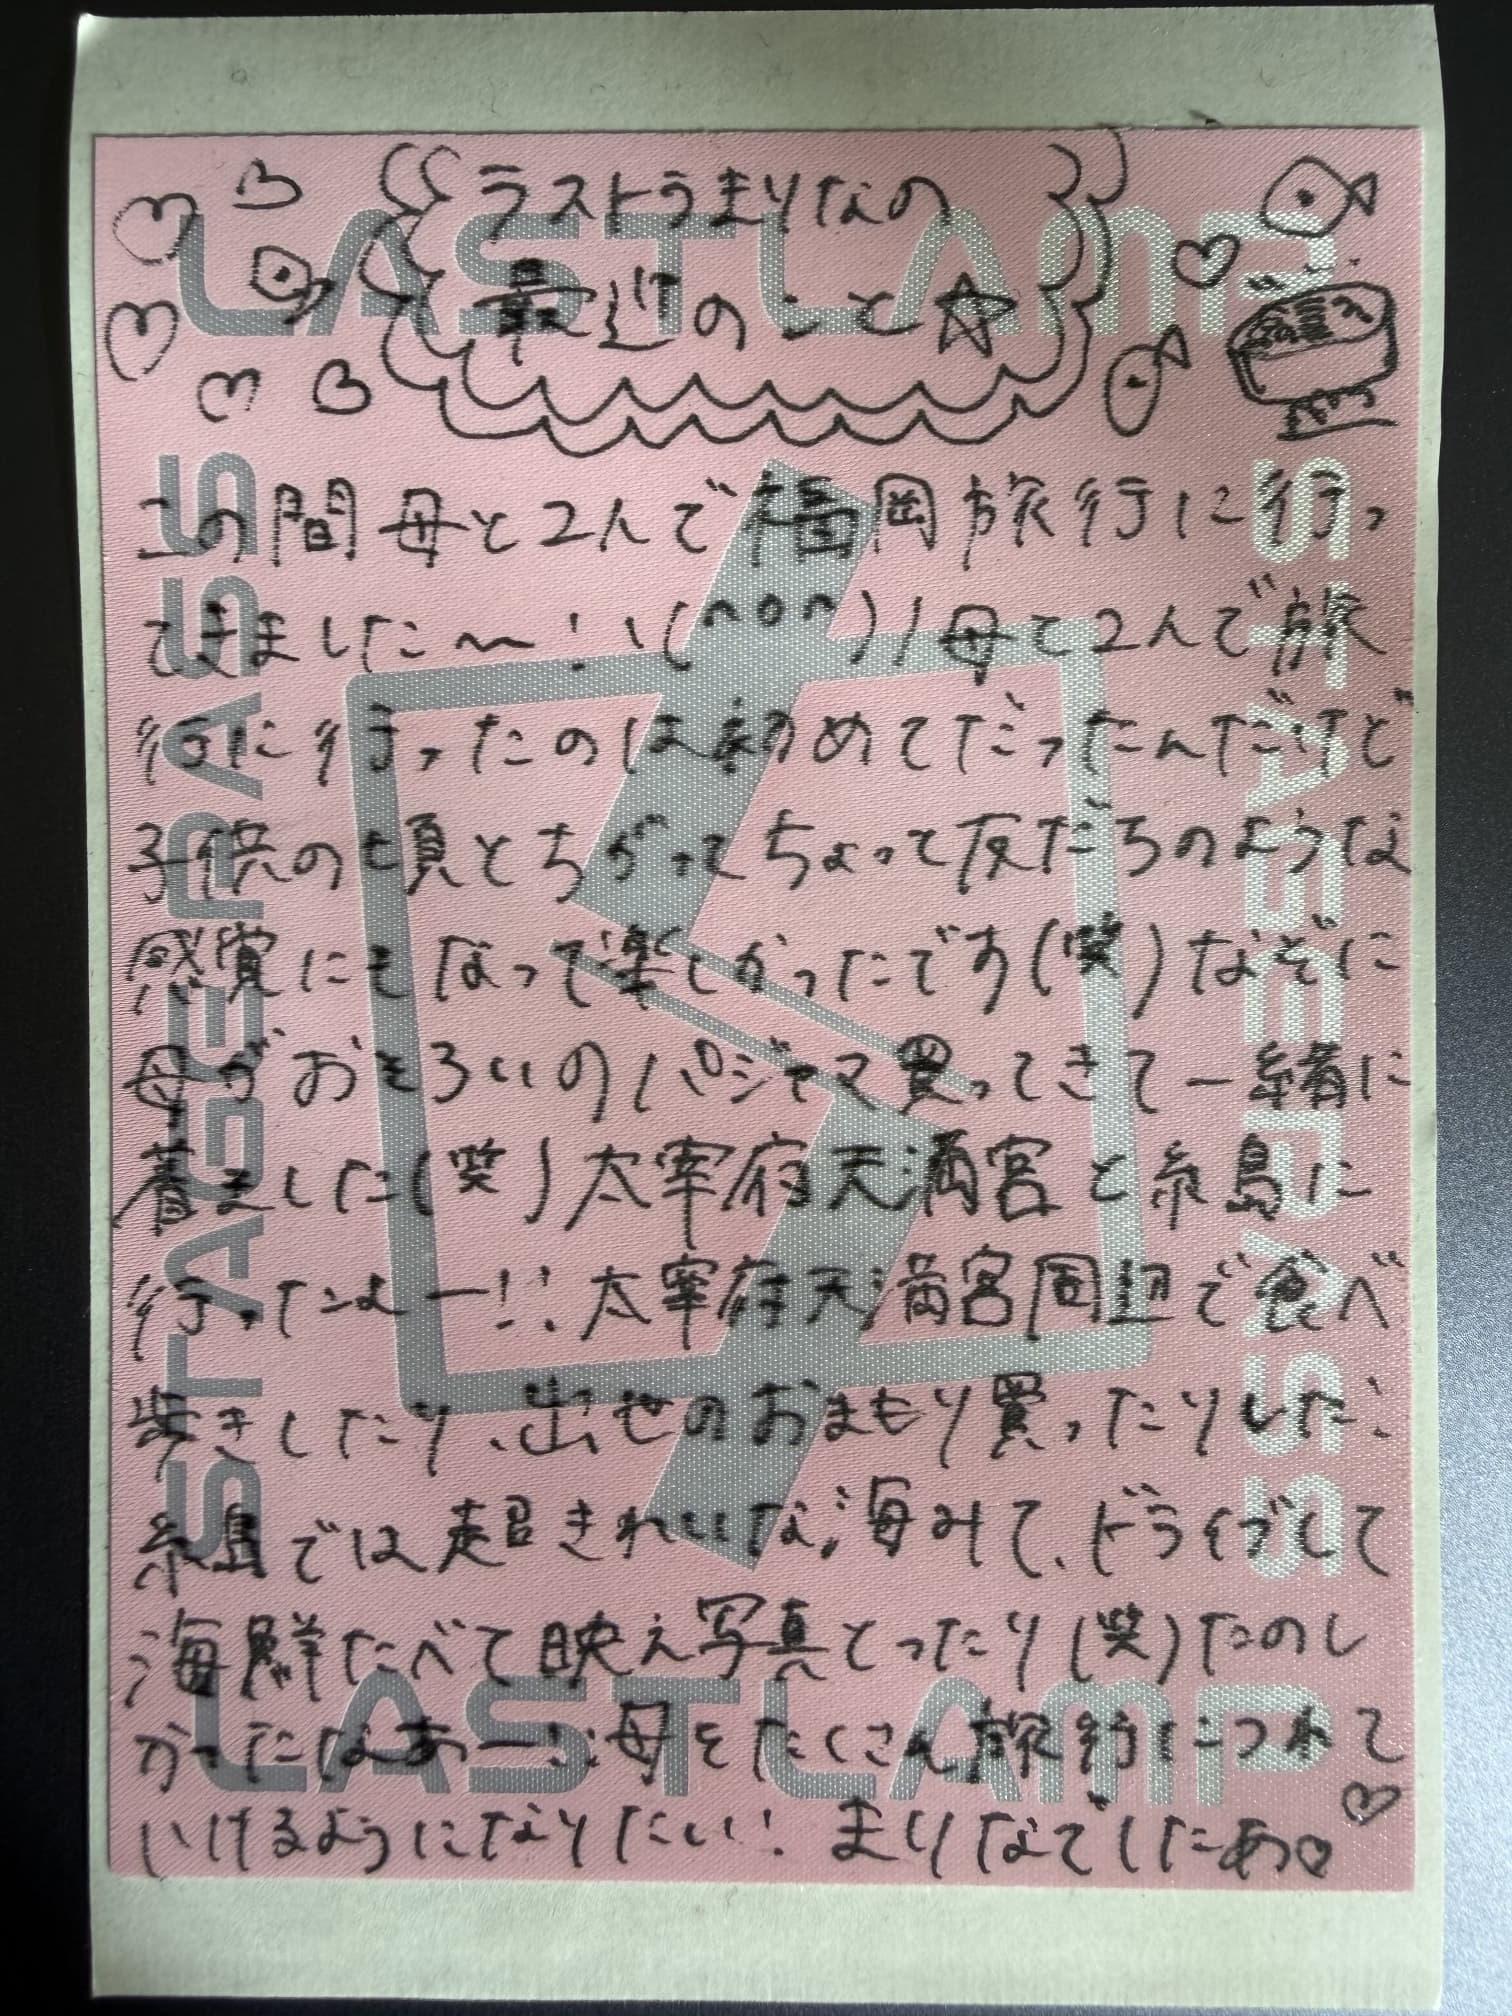 LASTLAMP
STAGEPASS
STAGEPASS
ラストうまりなの
最近のこと☆
この間母と2人で福岡旅行に行っ
てきました〜!ヽ(^o^)/母と2人で旅
行に行ったのは初めてだったんだけど
子供の頃とちがってちょっと友だちのような
感覚にもなって楽しかったです(笑)なぞに
母がおそろいのパジャマ買ってきて一緒に
着ました(笑)太宰府天満宮と糸島に
行ったよー!!太宰府天満宮周辺で食べ
歩きしたり、出世のおまもり買ったりした!
糸島では超きれいな海みて、ドライブして
海鮮たべて映え写真とったり(笑)たのし
かったなあー!!母をたくさん旅行につれて
いけるようになりたい!まりなでしたあ♡
LASTLAMP